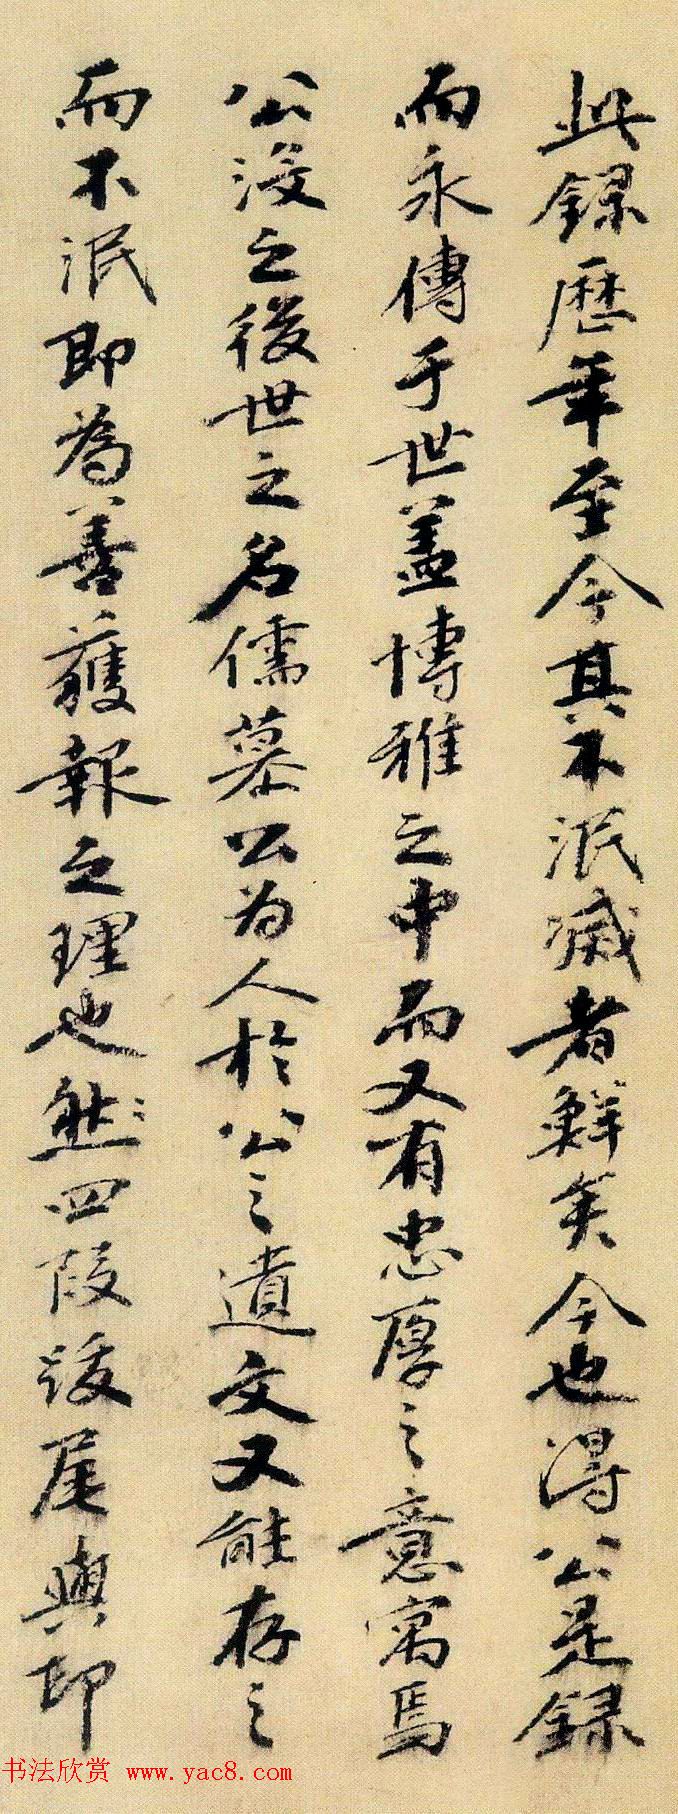 此錄歷年至今其不泯滅者鮮矣今也得公是録
而永傳于世盖博雅之中而又有忠厚之意寓焉
公没之後世之名儒慕公为人於公之遺文又能存之
而不泯即為善獲報之理也然四段跋尾與印
书法欣赏 www.yac8.com